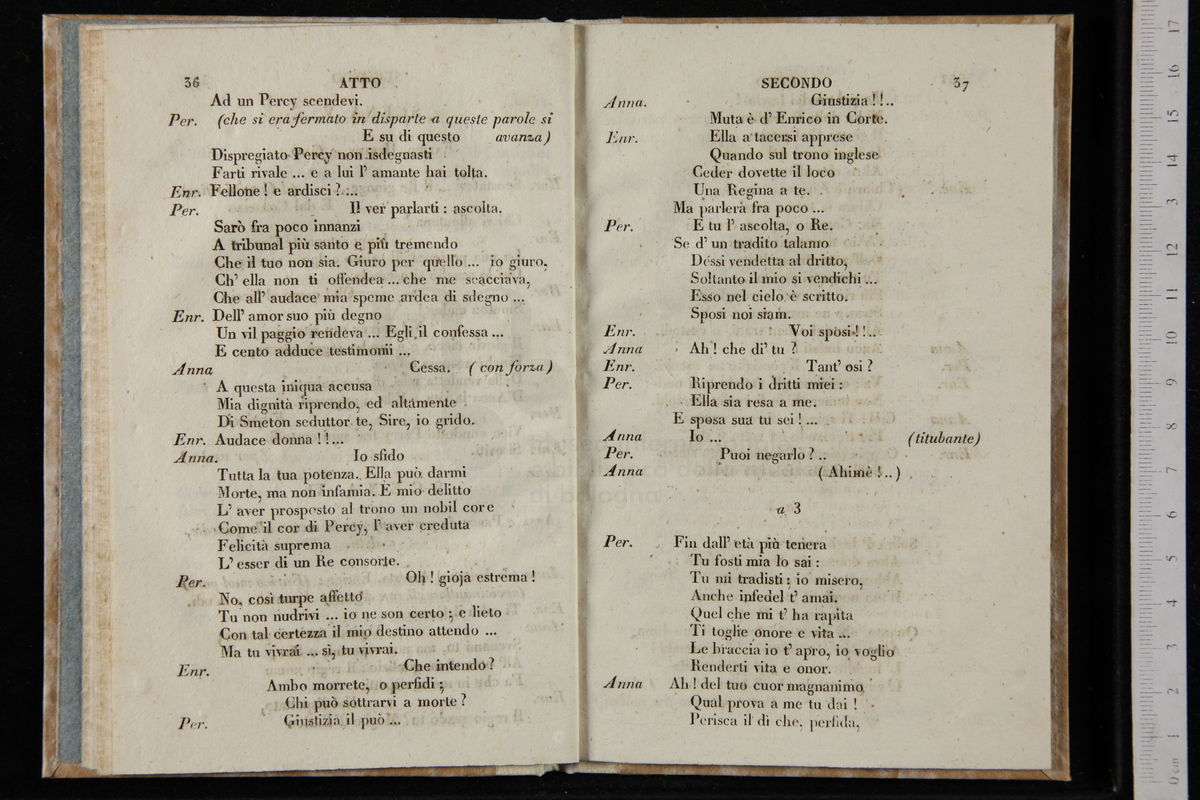 36 ATTO
Ad un Percy scendevi.
Per. (che si era fermato in disparte a queste parole si
E su di questo avanza)
Dispregiato Percy non isdegnasti
Farti rivale ... e a lui l' amante hai tolta.
Enr. Fellone! e ardisci? ...
Per. Il ver parlarti: ascolta.
Sarò fra poco innanzi
A tribunal più santo e più tremendo
Che il tuo non sia. Giuro per quello ... io giuro,
Ch' ella non ti offendea ... che me scacciava,
Che all' audace mia speme ardea di sdegno ...
Enr. Dell' amor suo più degno
Un vil paggio rendeva ... Egli il confessa ...
E cento adduce testimonii ...
Anna Cessa. (con forza)
A questa iniqua accusa
Mia dignità riprendo, ed altamente
Di Smeton seduttor te, Sire, io grido.
Enr. Audace donna!!...
Anna. Io sfido
Tutta la tua potenza. Ella può darmi
Morte, ma non infamia. E mio delitto
L' aver prosposto al trono un nobil core
Come il cor di Percy, l' aver creduta
Felicità suprema
L' esser di un Re consorte.
Per. Oh! gioja estrema!
No, così turpe affetto
Tu non nudrivi ... io ne son certo; e lieto
Con tal certezza il mio destino attendo ...
Ma tu vivrai ... sì, tu vivrai.
Enr. Che intendo?
Ambo morrete, o perfidi;
Chi può sottrarvi a morte?
Per. Giustizia il può ...
SECONDO 37
Anna. Giustizia!!..
Muta è d' Enrico in Corte.
Enr. Ella a tacersi apprese
Quando sul trono inglese
Ceder dovette il loco
Una Regina a te.
Ma parlerà fra poco ...
Per. E tu l' ascolta, o Re.
Se d' un tradito talamo
Dessi vendetta al dritto,
Soltanto il mio si vendichi ...
Esso nel cielo è scritto.
Sposi noi siam.
Enr. Voi sposi!!..
Anna Ah! che di' tu?
Enr. Tant' osi?
Per. Riprendo i dritti miei:
Ella sia resa a me.
E sposa sua tu sei! ...
Anna Io ... (titubante)
Per. Puoi negarlo? ..
Anna (Ahimè!..)
a 3
Per. Fin dall' età più tenera
Tu fosti mia lo sai:
Tu mi tradisti: io misero,
Anche infedel t' amai.
Quel che mi t' ha rapita
Ti toglie onore e vita ...
Le braccia io t' apro, io voglio
Renderti vita e onor.
Anna Ah! del tuo cuor magnanimo
Qual prova a me tu dai!
Perisca il dì che, perfida,